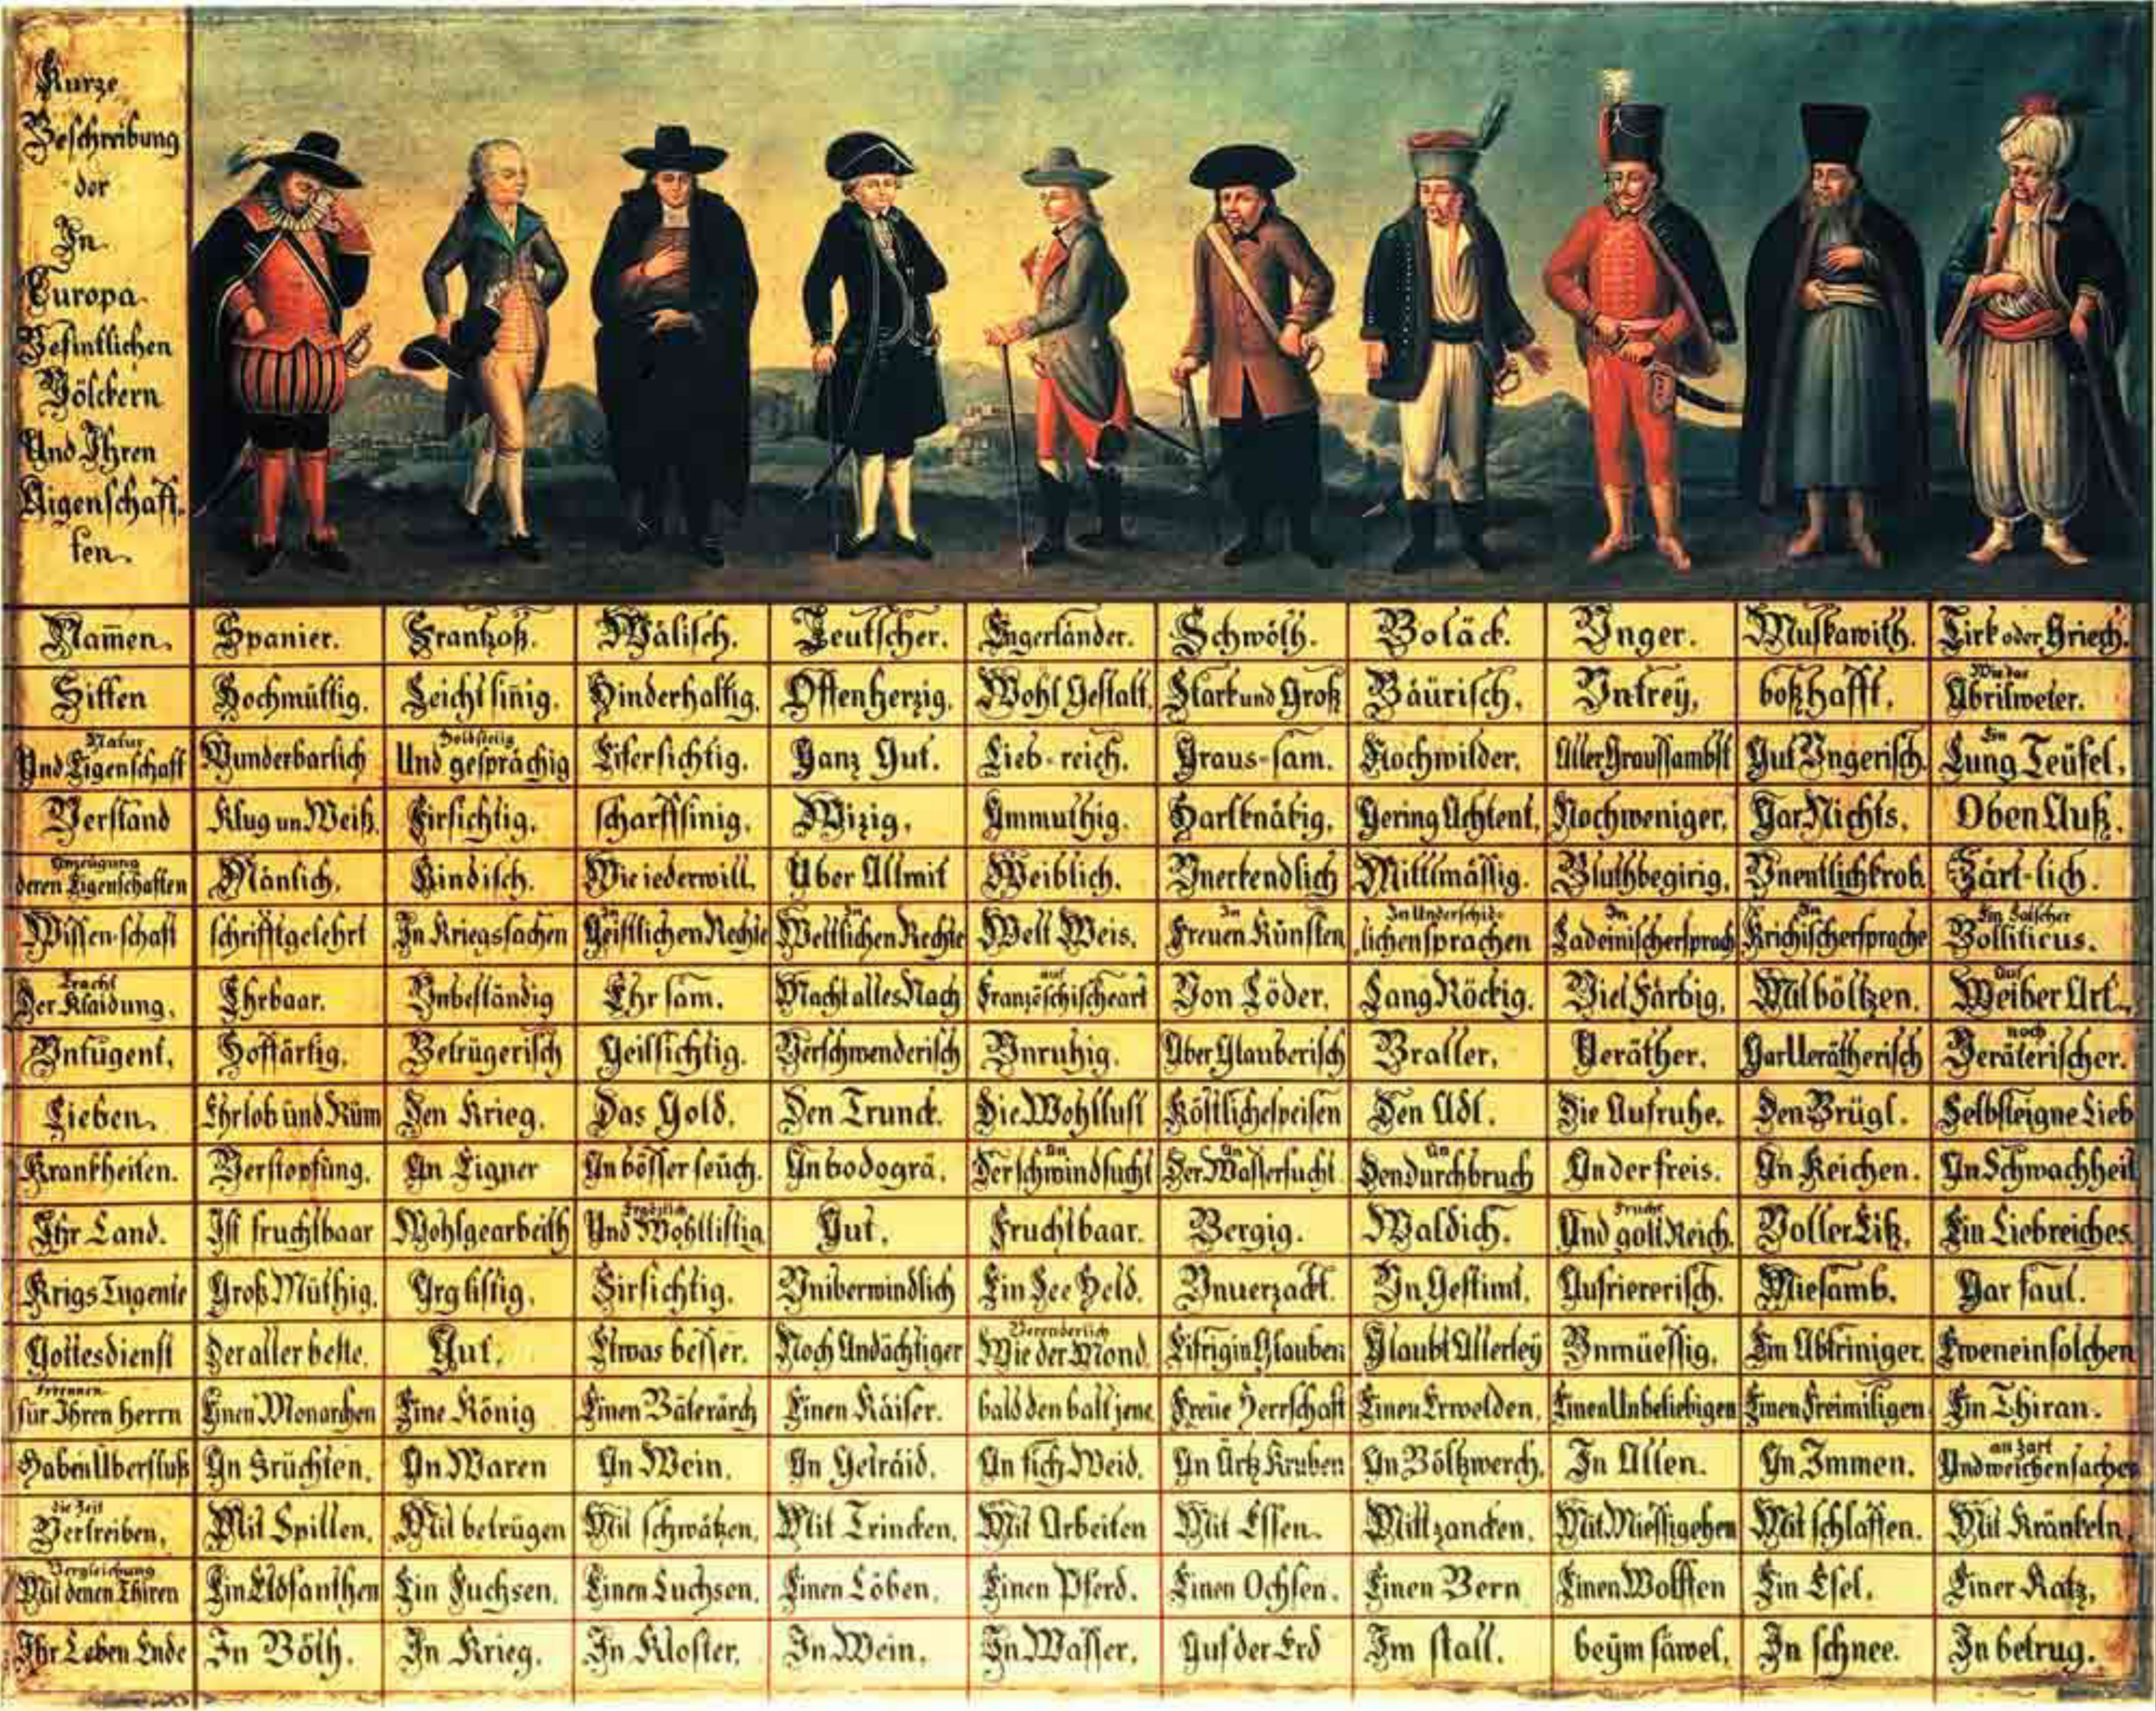 Kurze
Beschreibung
der
In
Europa
Befintlichen
Völckern
Und Ihren
Aigenschaff-
ten.
Namen. Spanier. Frantzoß. Wälisch. Teutscher. Engerländer. Schwöth. Boläck. Vnger. Muskawith. Tirk oder Griech.
Sitten Hochmüttig. Leichtsinig. Hinderhaltig. Offenherzig. Wohl Gestalt. Stark und Groß Bäürisch. Vntrey. boßhafft. Wie das Abrilweter.
Natur Und Eigenschaft Wunderbarlich Holdseelig Und gesprächig Eifersichtig. Ganz Gut. Lieb-reich. Graus-sam. Nochwilder. Aller Graussambst Gut Vngerisch. Ein Lung Teüfel.
Verstand Klug un Weiß. Firsichtig. scharffsinig. Wizig. Ammuthig. Hartknäkig. Gering Achtent. Nochweniger. Gar Nichts. Oben Auß.
Anzeügung deren Eigenschaften Mänlich. Kindisch. Wie iederwill. Über Allmit Weiblich. Vnerkendlich Mittlmässig. Bluthbegirig. Vnentlichkrob. Zärt-lich.
Wissen-schaft schrifftgelehrt In Kriegssachen In Geistlichen Rechte In Weltlichen Rechte Welt Weis. In Freuen Künsten In Underschid-lichen sprachen In Ladeinischersprach In Krichischersprache Ein Falscher Bolliticus.
Tracht Der Klaidung. Ehrbaar. Vnbeständig Ehr sam. Macht alles Nach auf Französchischeart Von Löder. Lang Röckig. Viel Färbig. Mit böltzen. Auf Weiber Art.
Vntugent. Hoffärtig. Betrügerisch Geillsichtig. Verschwenderisch Vnruhig. Aber Glauberisch Braller. Veräther. Gar Verätherisch noch Veräterischer.
Lieben. Ehrlob und Rüm Den Krieg. Das Gold. Den Trunck. Die Wohllust Köstlichespeisen Den Adl. Die Aufruhe. Den Brügl. Selbsteigne Lieb
Krankheiten. Verstopfung. An Eigner An bösser seüch. An bodogrä. An Der schwindsucht An Der Wassersucht An Den durchbruch An der freis. An Keichen. An Schwachheit
Ihr Land. Ist fruchtbaar Wohlgearbeith Ergözlich Und Wohllistig Gut. Fruchtbaar. Bergig. Waldich. Frucht Und golt Reich. Voller Eiß. Ein Liebreiches
Krigs Tugente Groß Müthig. Arglistig. Firsichtig. Vniberwindlich Ein See Held. Vnuerzackt. Vn Gestimt. Aufriererisch. Miesamb. Gar faul.
Gottesdienst Der aller beste. Gut. Etwas besser. Noch Andächtiger Verenderlich Wie der Mond. Eifrig in Glauben Glaubt Allerley Vnmüessig. Ein Abtriniger. Eweneinsolchen
Erkennen für Ihren herrn Einen Monarchen Eine König Einen Bäterärch Einen Käiser. bald den balt jene Freüe Herrschaft Einen Erwelden. Einen Unbeliebigen Einen Freimiligen Ein Thiran.
Haben Überfluß An Früchten. An Waren An Wein. An Geträid. An fich Weid. An Ärtz Kruben An Böltzwerch. In Allen. An Immen. an zart Und weichen sachen
die Zeit Vertreiben. Mit Spillen. Mit betrügen Mit schwätzen. Mit Trincken. Mit Arbeiten Mit Essen. Mitt zancken. Mit Miessigehen Mit schlaffen. Mit Kränkeln.
Vergleichung Mit denen Thiren Ein Elofanthen Ein Fuchsen. Einen Luchsen. Einen Löben. Einen Pferd. Einen Ochsen. Einen Bern Einen Wolffen Ein Esel. Einer Katz.
Ihr Leben Ende In Böth. In Krieg. In Kloster. In Wein. In Wasser. Auf der Erd Im stall. beym säwel. In schnee. In betrug.